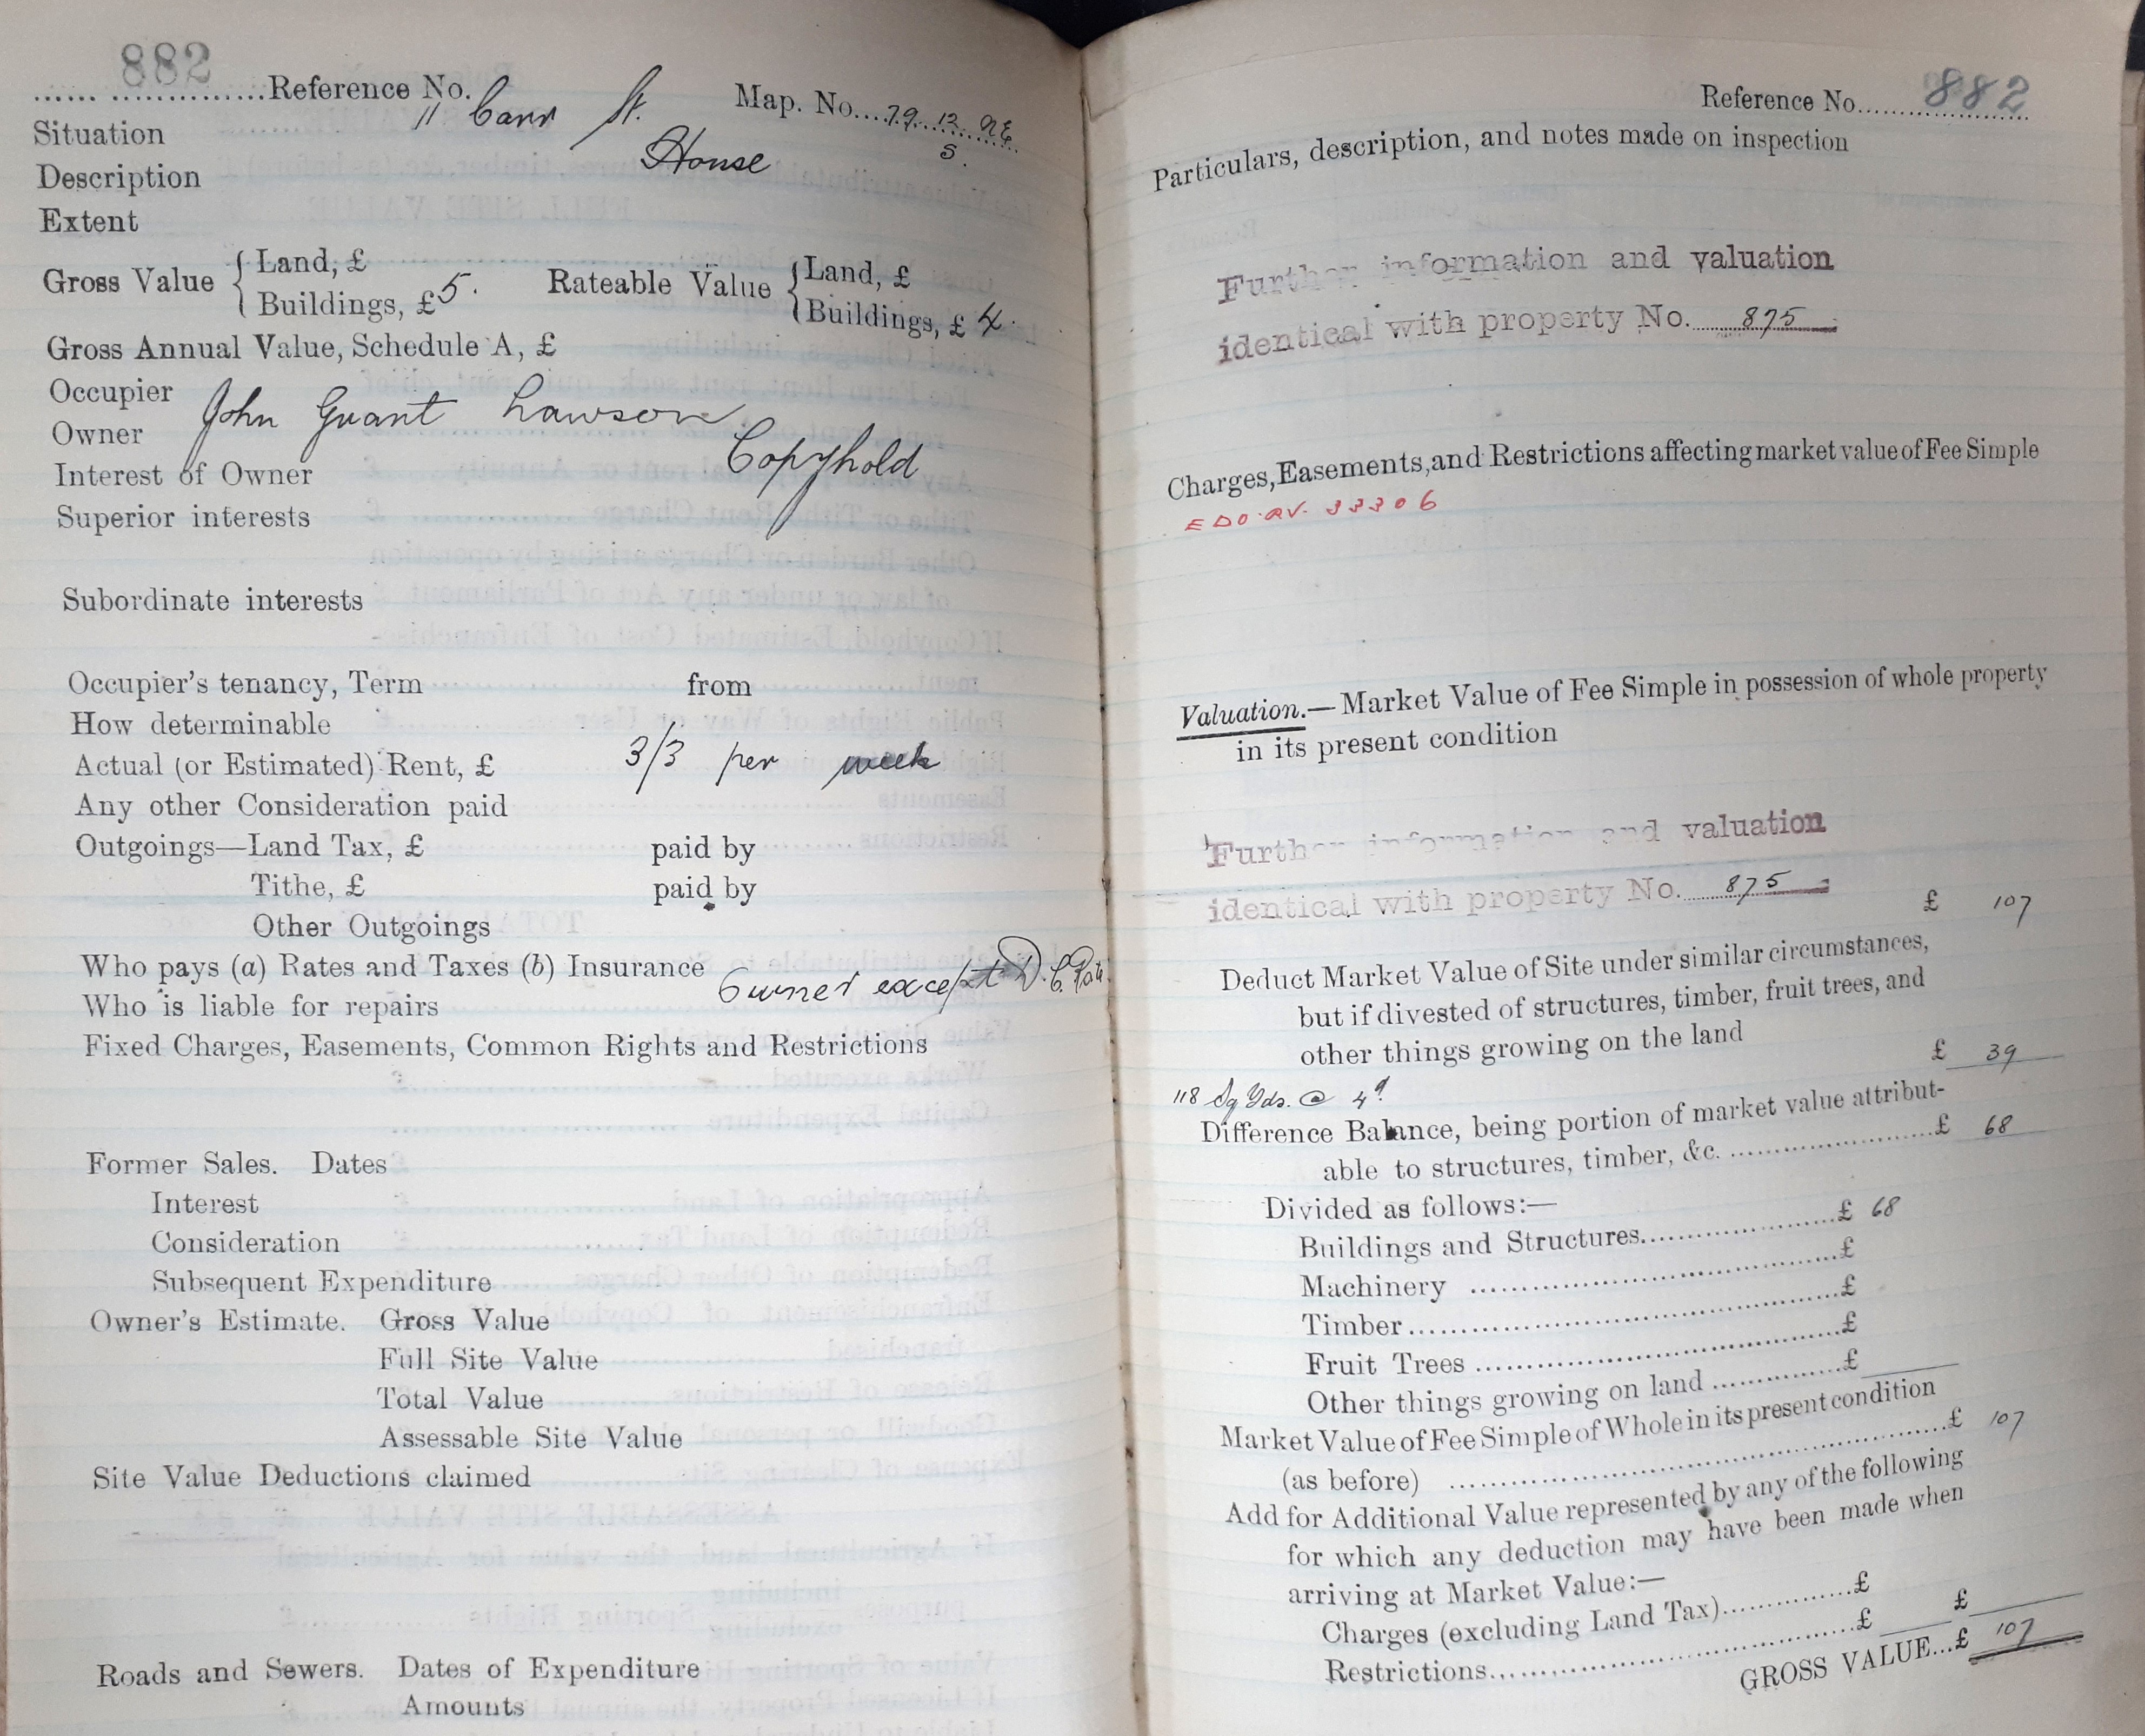 882
Reference No.
Map. No. 79. 12. NE
Situation 11 Carr St.
S.
Description House
Extent
Gross Value { Land, £
Buildings, £ 5.
Rateable Value { Land, £
Buildings, £ 4.
Gross Annual Value, Schedule A, £
Occupier
Owner John Grant Lawson
Interest of Owner Copyhold
Superior interests
Subordinate interests
Occupier's tenancy, Term from
How determinable
Actual (or Estimated) Rent, £ 3/3 per week
Any other Consideration paid
Outgoings—Land Tax, £ paid by
Tithe, £ paid by
Other Outgoings
Who pays (a) Rates and Taxes (b) Insurance
Owner except D.C. Rate
Who is liable for repairs
Fixed Charges, Easements, Common Rights and Restrictions
Former Sales. Dates
Interest
Consideration
Subsequent Expenditure
Owner's Estimate. Gross Value
Full Site Value
Total Value
Assessable Site Value
Site Value Deductions claimed
Roads and Sewers. Dates of Expenditure
Amounts
Reference No. 882
Particulars, description, and notes made on inspection
Further information and valuation
identical with property No. 875
Charges, Easements, and Restrictions affecting market value of Fee Simple
EDO. RV. 33306
Valuation.—Market Value of Fee Simple in possession of whole property
in its present condition
Further information and valuation
identical with property No. 875
£ 107
Deduct Market Value of Site under similar circumstances,
but if divested of structures, timber, fruit trees, and
other things growing on the land
£ 39
118 Sq Yds. @ 4d
Difference Balance, being portion of market value attribut-
able to structures, timber, &c. £ 68
Divided as follows:—
Buildings and Structures £ 68
Machinery £
Timber £
Fruit Trees £
Other things growing on land £
Market Value of Fee Simple of Whole in its present condition
(as before) £ 107
Add for Additional Value represented by any of the following
for which any deduction may have been made when
arriving at Market Value:—
Charges (excluding Land Tax) £
Restrictions £ £
GROSS VALUE...£ 107